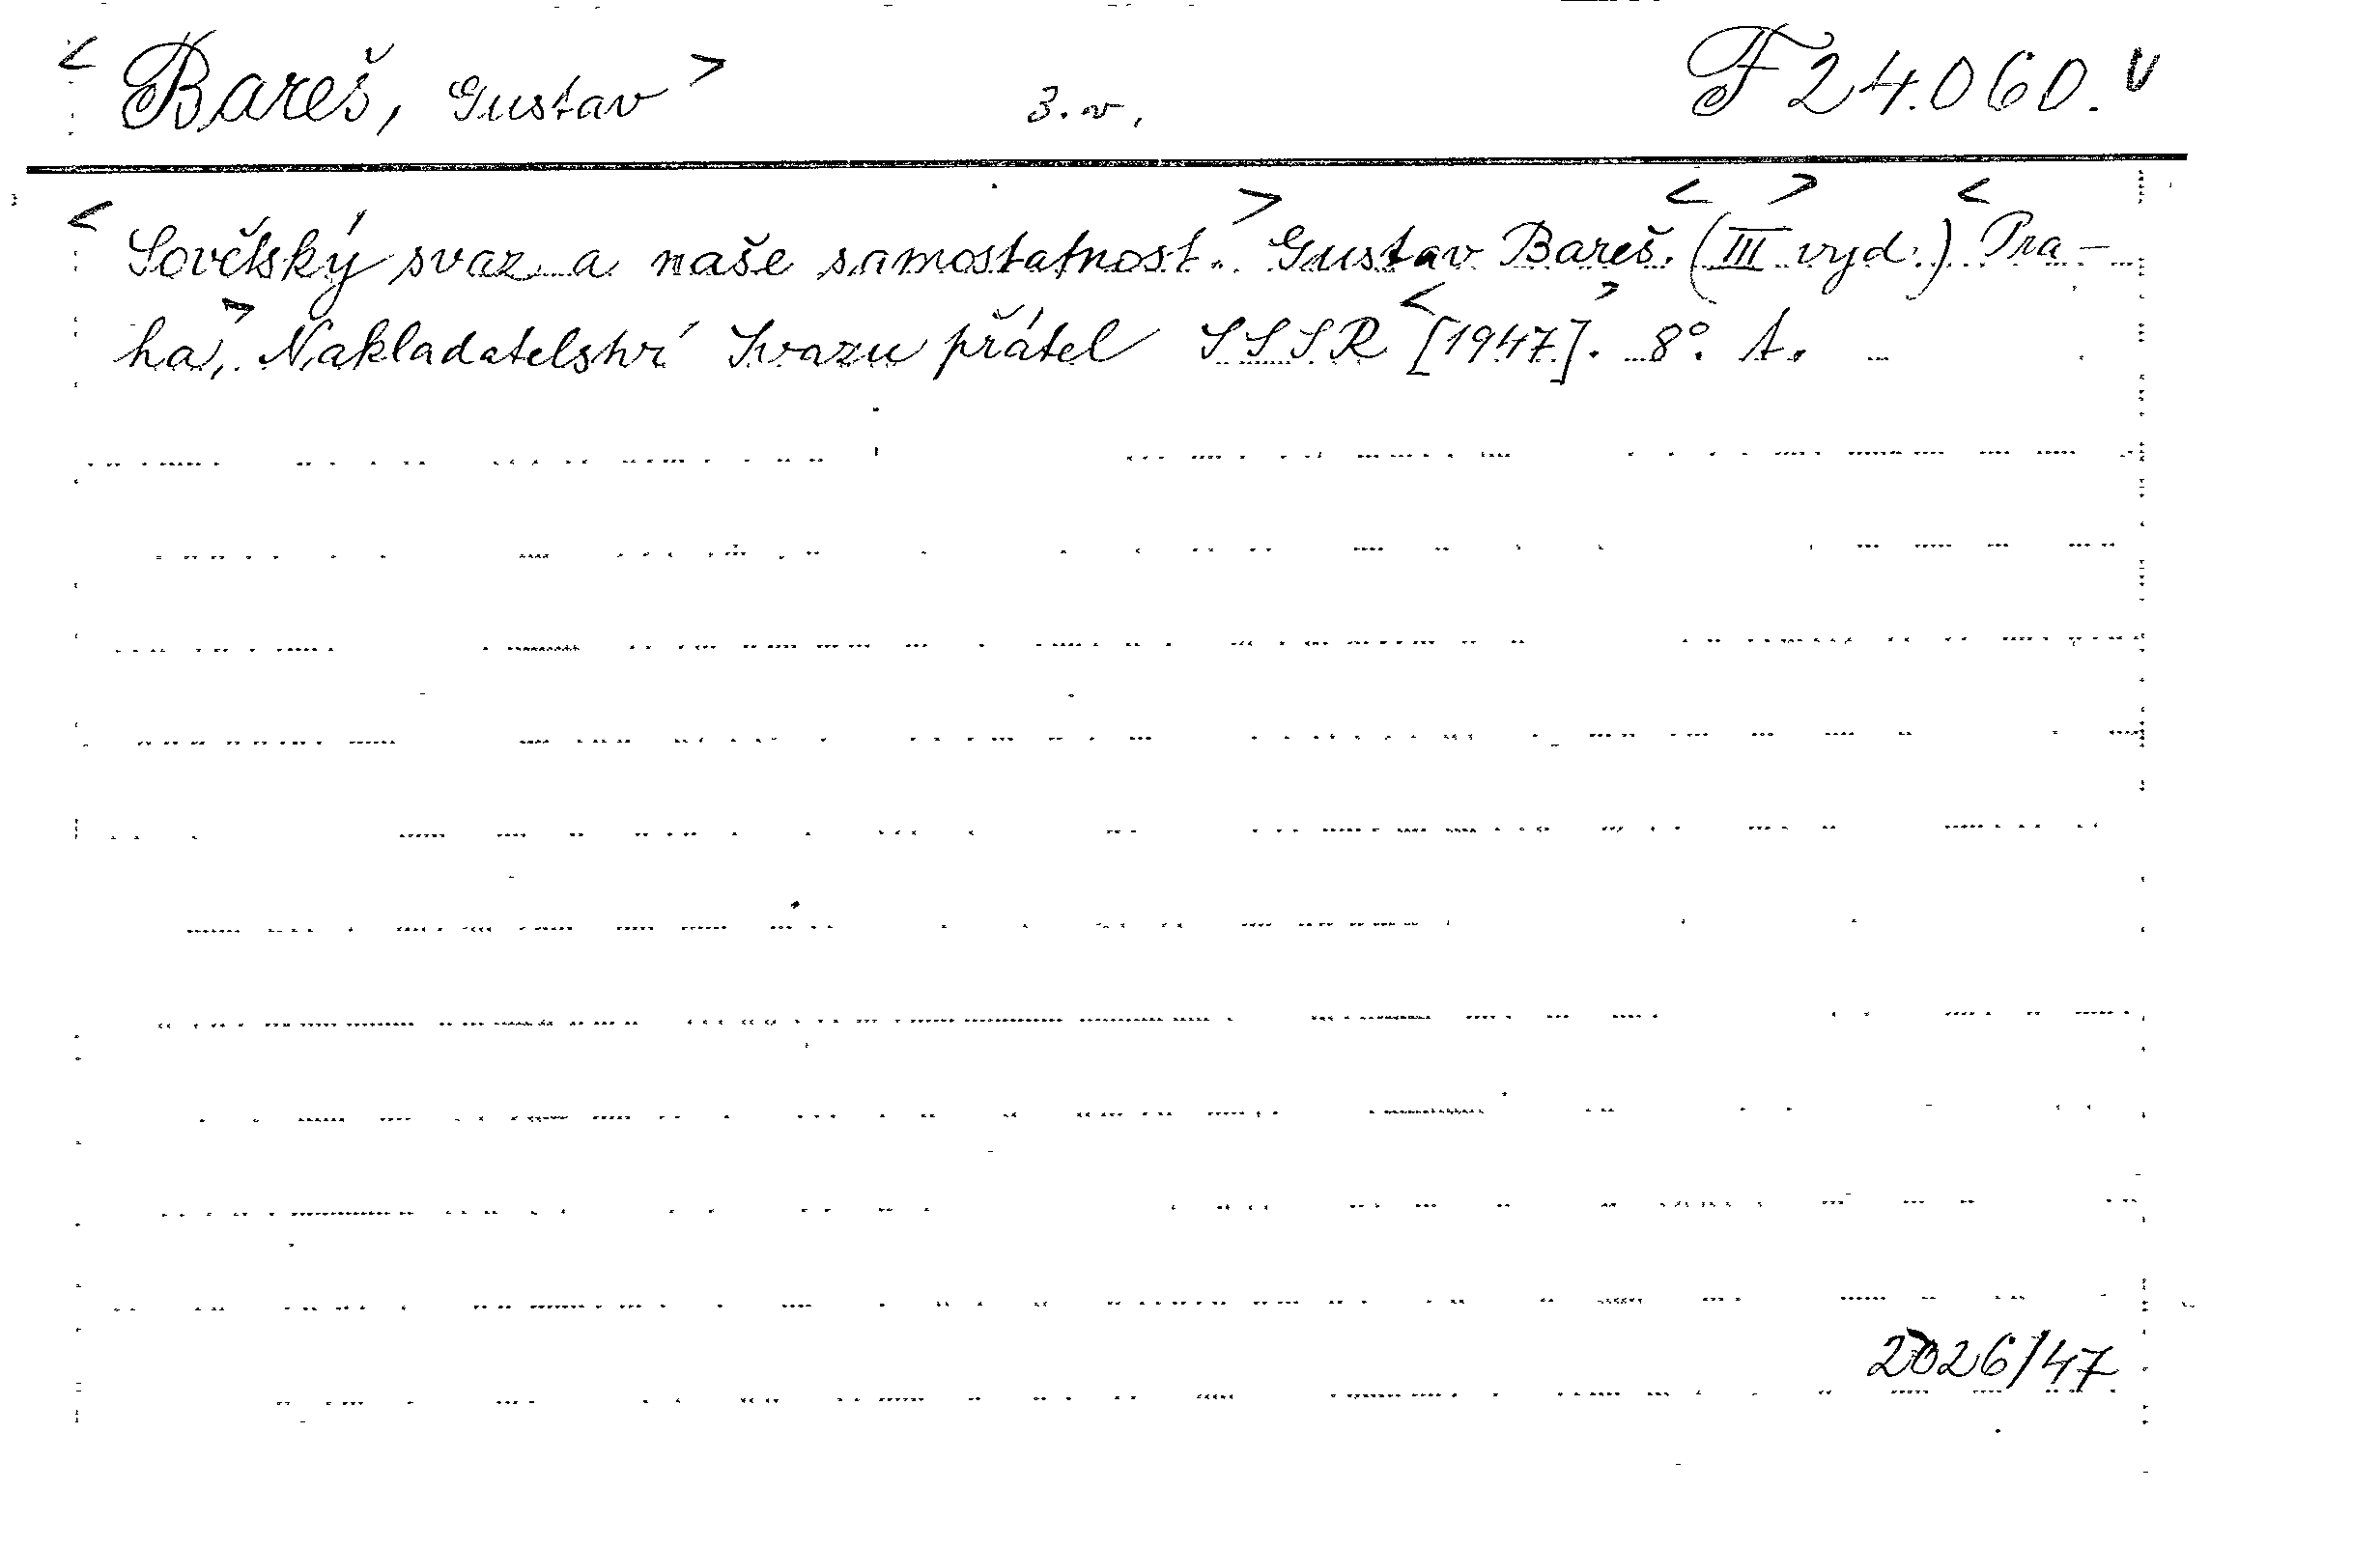 < Bareš, Gustav > 3. v. F 24.060. v
< Sovětský svaz a naše samostatnost. > Gustav Bareš. (< III > vyd.) < Pra-
ha, > Nakladatelství Svazu přátel SSSR < [1947]. > 8°. A.
2026/47